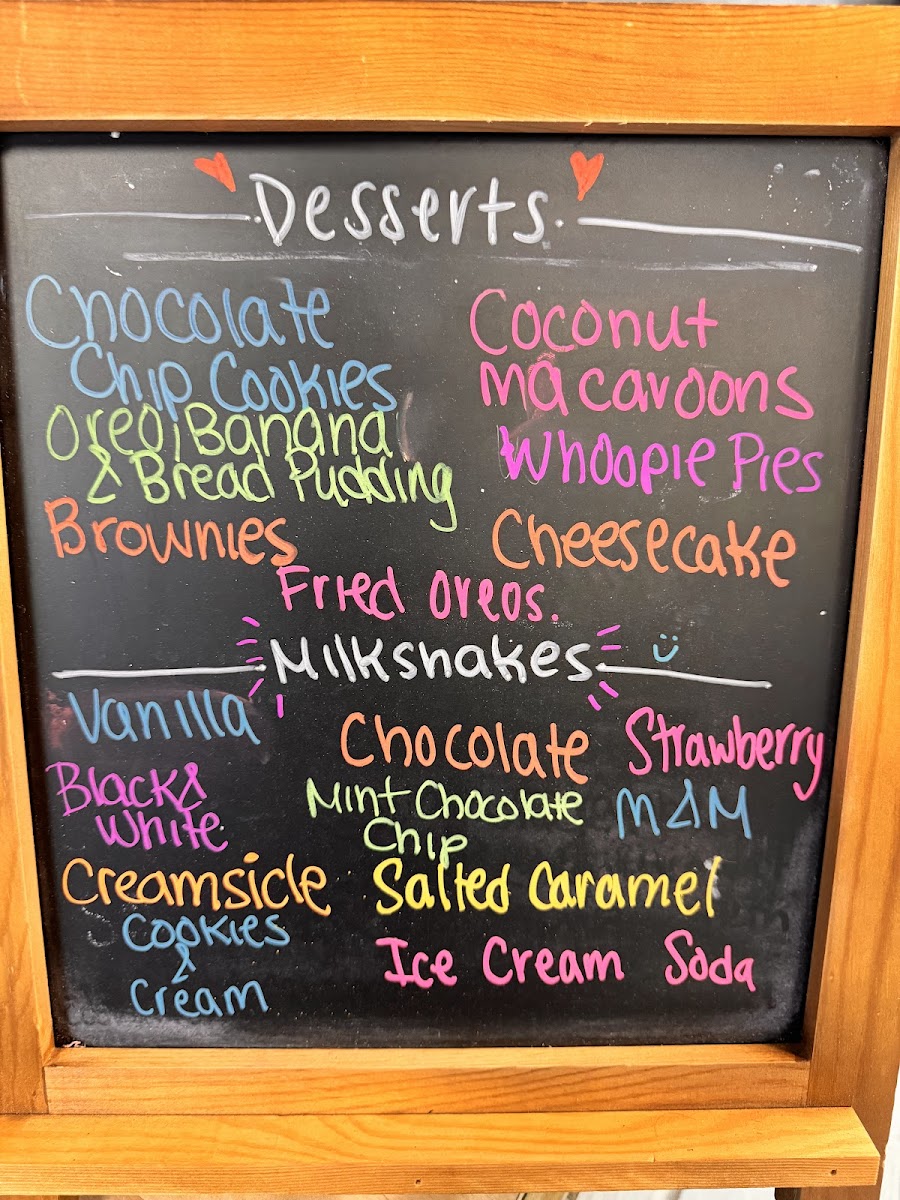 Desserts
Chocolate
Chip Cookies
Oreo, Banana
& Bread Pudding
Brownies
Coconut
macaroons
Whoopie Pies
Cheesecake
Fried Oreos.
Milkshakes
Vanilla
Chocolate
Strawberry
Black &
White
Mint Chocolate
Chip
M&M
Creamsicle
Salted Caramel
Cookies
&
Cream
Ice Cream Soda